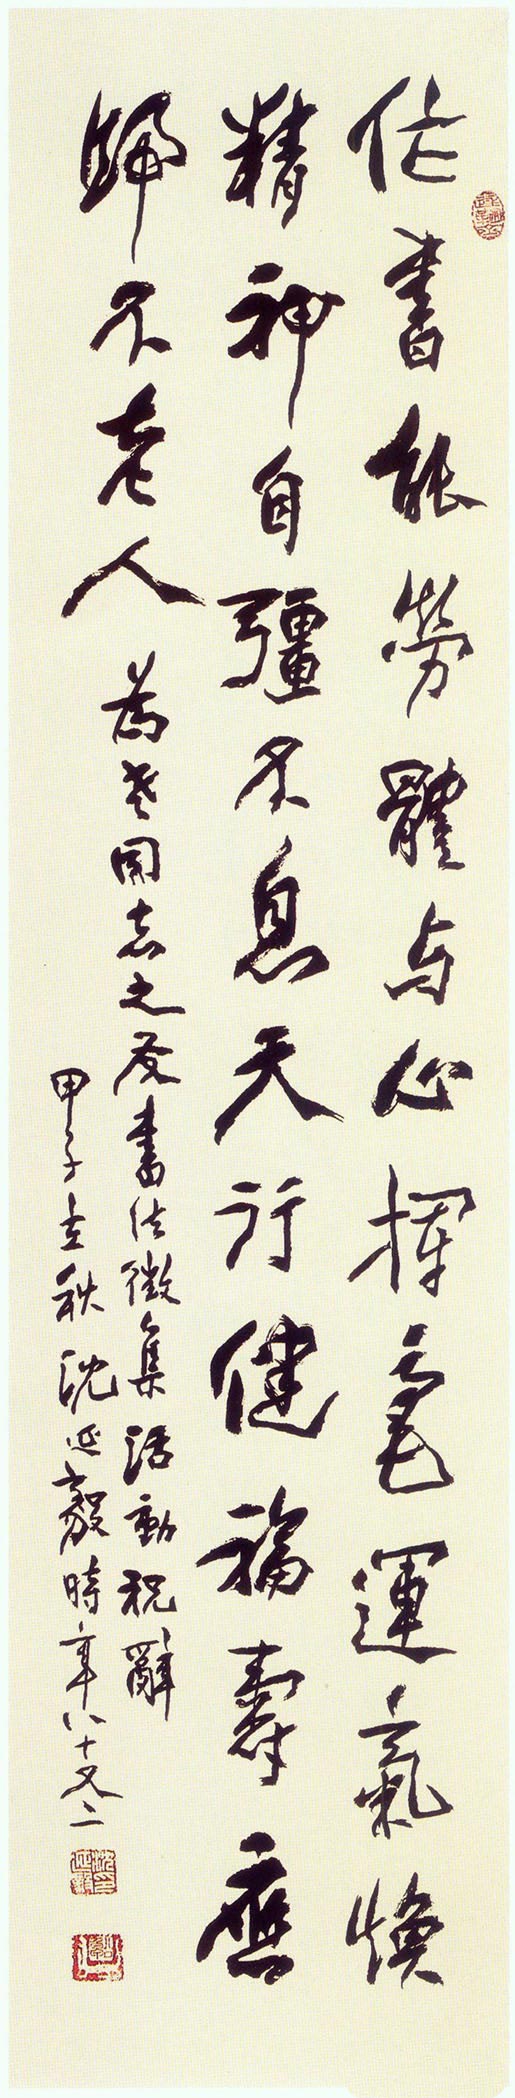 作書能勞體与心揮毫運氣煥
精神自彊不息天行健福壽應
歸不老人
為老同志之友書法徵集活動祝辭
甲子立秋沈延毅時年八十又二